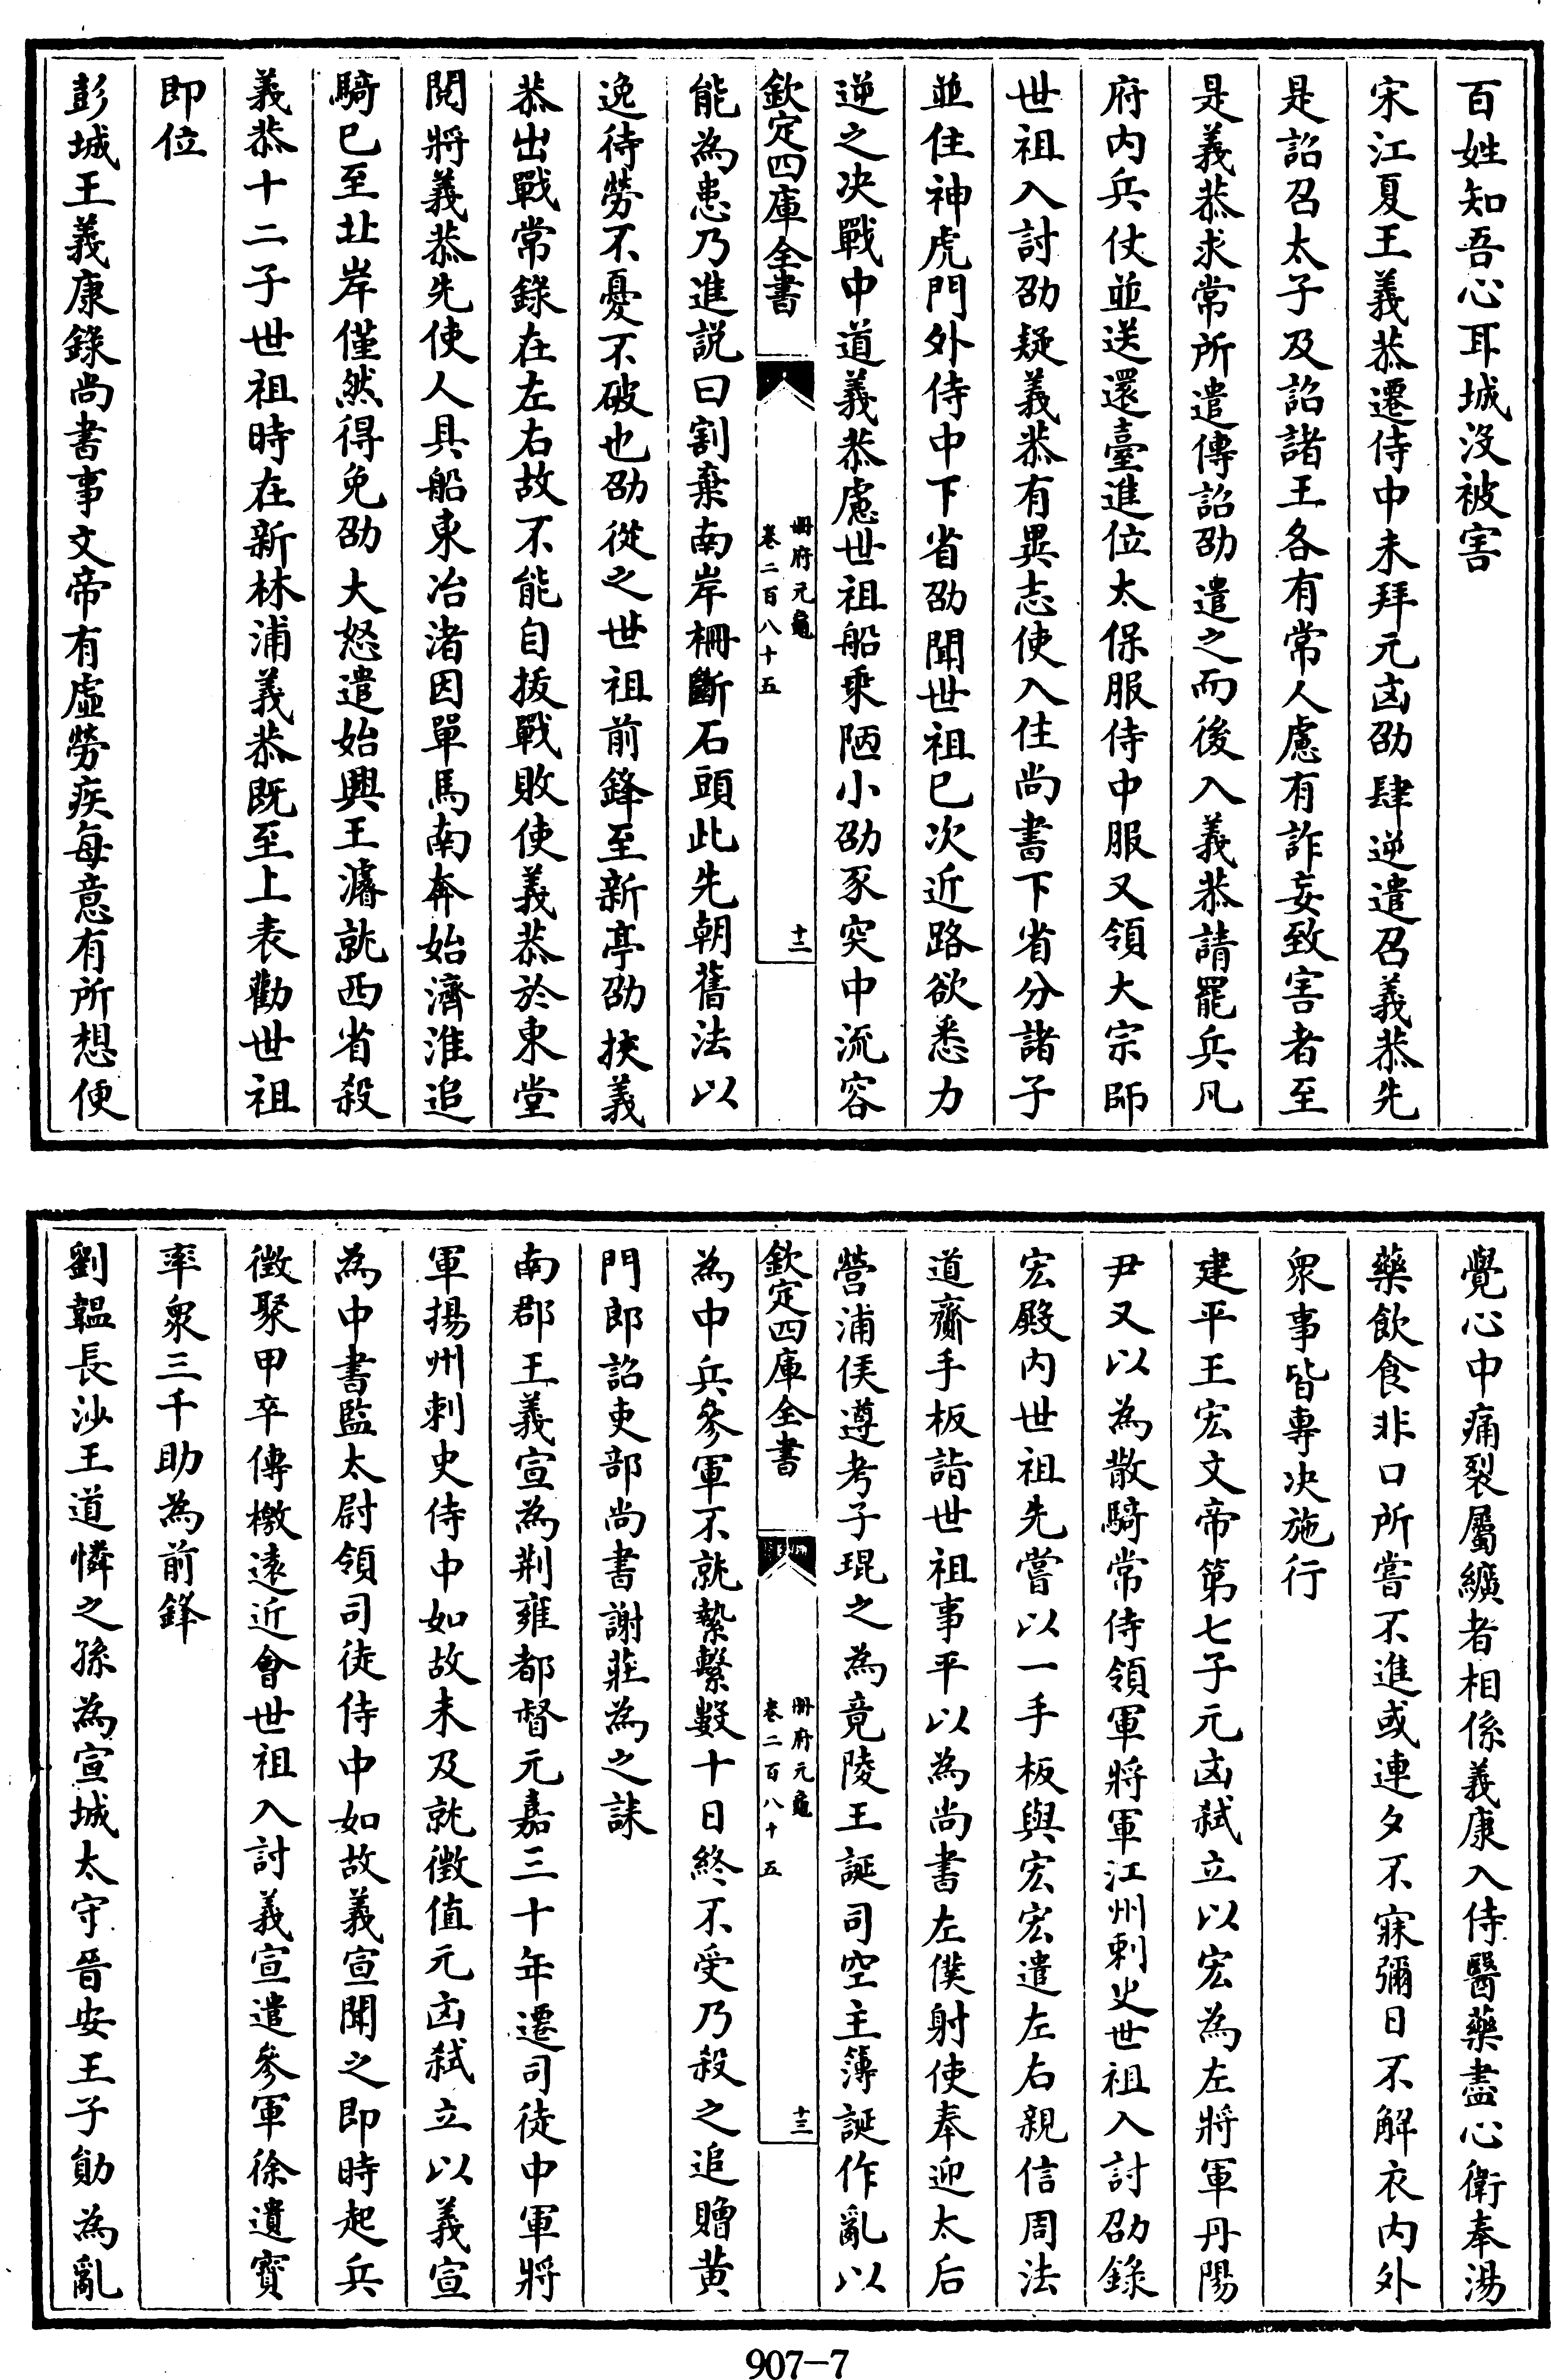 百姓知吾心耳城沒被害
宋江夏王義恭遷侍中未拜元凶劭肆逆遣召義恭先
是詔召太子及詔諸王各有常人慮有詐妄致害者至
是義恭求常所遣傳詔劭遣之而後入義恭請罷兵凡
府内兵仗並送還臺進位太保服侍中服又領大宗師
世祖入討劭疑義恭有異志使入住尚書下省分諸子
並住神虎門外侍中下省劭聞世祖已次近路欲悉力
逆之决戰中道義恭慮世祖船乗陋小劭豕突中流容
欽定四庫全書
冊府元龜
卷二百八十五
十二
能為患乃進説曰割棄南岸柵斷石頭此先朝舊法以
逸待勞不憂不破也劭從之世祖前鋒至新亭劭挾義
恭出戰常錄在左右故不能自拔戰敗使義恭於東堂
閱將義恭先使人具船東冶渚因單馬南奔始濟淮追
騎已至北岸僅然得免劭大怒遣始興王濬就西省殺
義恭十二子世祖時在新林浦義恭既至上表勸世祖
即位
彭城王義康錄尚書事文帝有虛勞疾每意有所想便
覺心中痛裂屬纊者相係義康入侍醫藥盡心衛奉湯
藥飲食非口所嘗不進或連夕不寐彌日不解衣内外
衆事皆專决施行
建平王宏文帝第七子元凶弒立以宏為左將軍丹陽
尹又以為散騎常侍領軍將軍江州刺史世祖入討劭錄
宏殿内世祖先嘗以一手板與宏宏遣左右親信周法
道齎手板詣世祖事平以為尚書左僕射使奉迎太后
營浦侯遵考子琨之為竟陵王誕司空主簿誕作亂以
欽定四庫全書
冊府元龜
卷二百八十五
十三
為中兵參軍不就縶繫數十日終不受乃殺之追贈黄
門郎詔吏部尚書謝莊為之誄
南郡王義宣為荆雍都督元嘉三十年遷司徒中軍將
軍揚州刺史侍中如故未及就徵值元凶弒立以義宣
為中書監太尉領司徒侍中如故義宣聞之即時起兵
徵聚甲卒傳檄遠近會世祖入討義宣遣參軍徐遺寳
率衆三千助為前鋒
劉韞長沙王道憐之孫為宣城太守晉安王子勛為亂
907-7